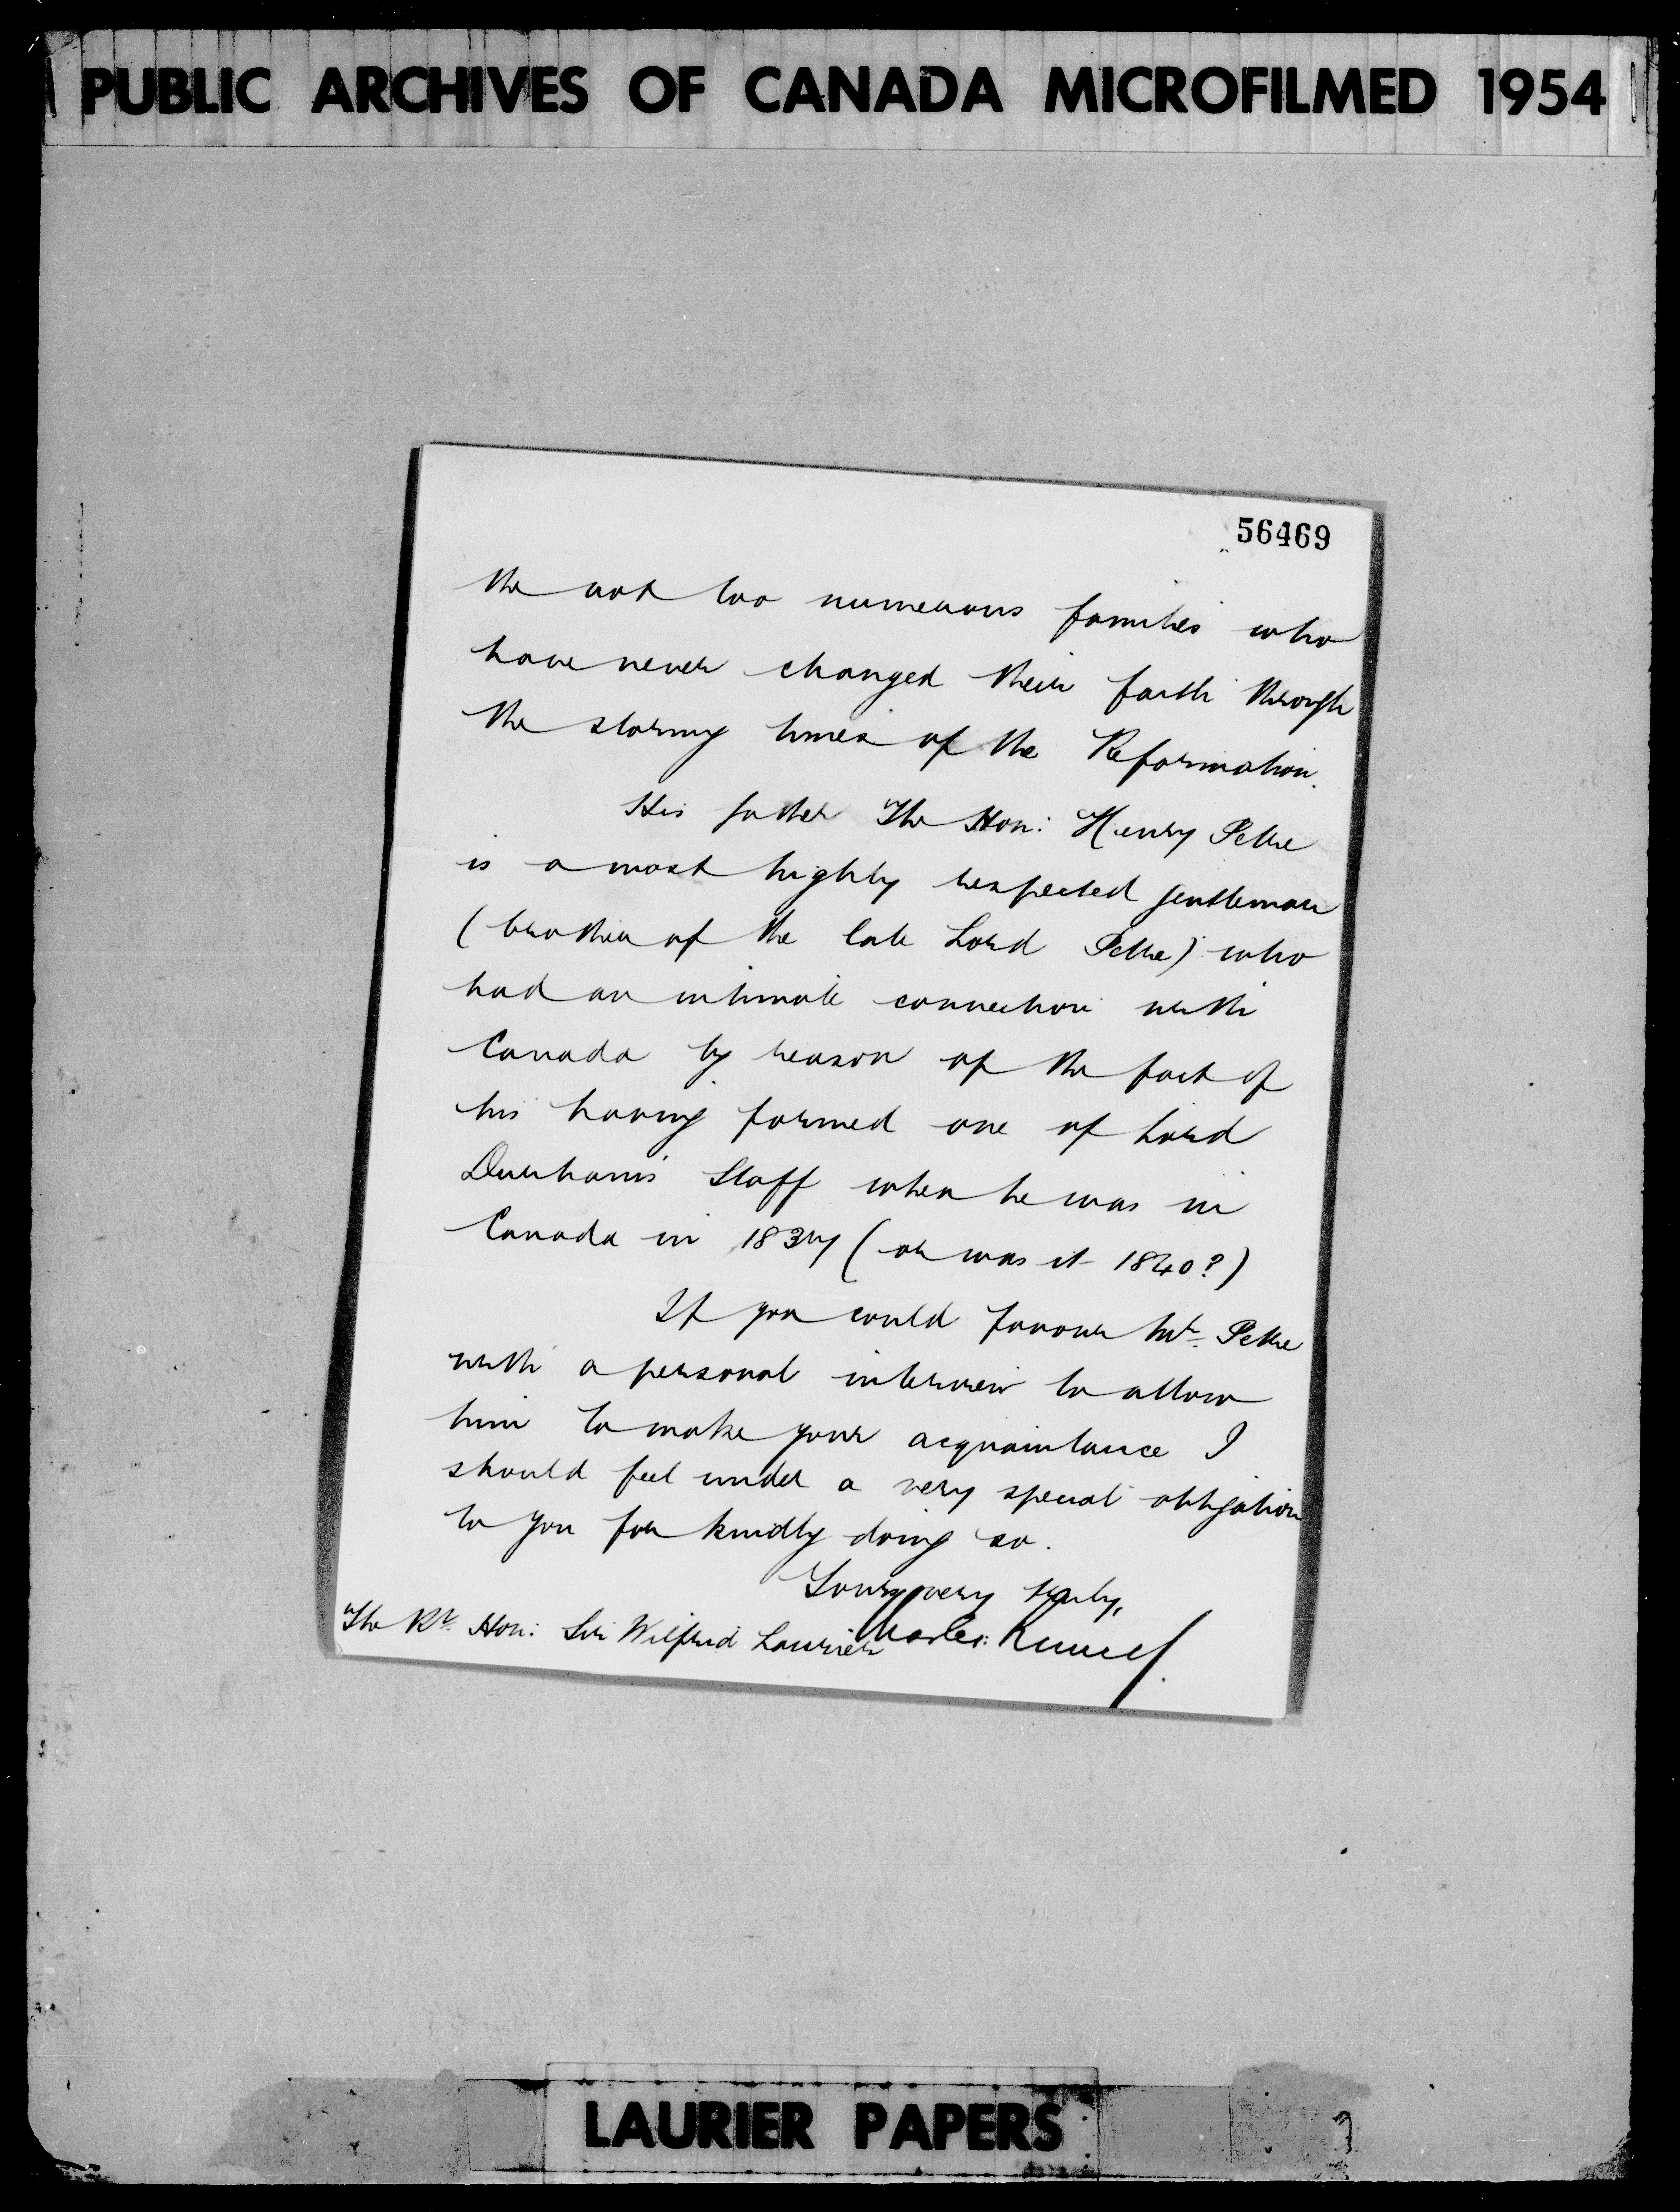 PUBLIC ARCHIVES OF CANADA MICROFILMED 1954
56469
the not too numerous families who
have never changed their faith through
the stormy times of the Reformation.
His father The Hon: Henry Petre
is a most highly respected gentleman
(brother of the late Lord Petre) who
had an intimate connection with
Canada by reason of the fact of
his having formed one of Lord
Durham's Staff when he was in
Canada in 1837 (or was it 1840?)
If you could favour Mr. Petre
with a personal interview to allow
him to make your acquaintance I
should feel under a very special obligation
to you for kindly doing so.
Yours very truly,
Charles Russell.
The Rt. Hon: Sir Wilfrid Laurier
LAURIER PAPERS